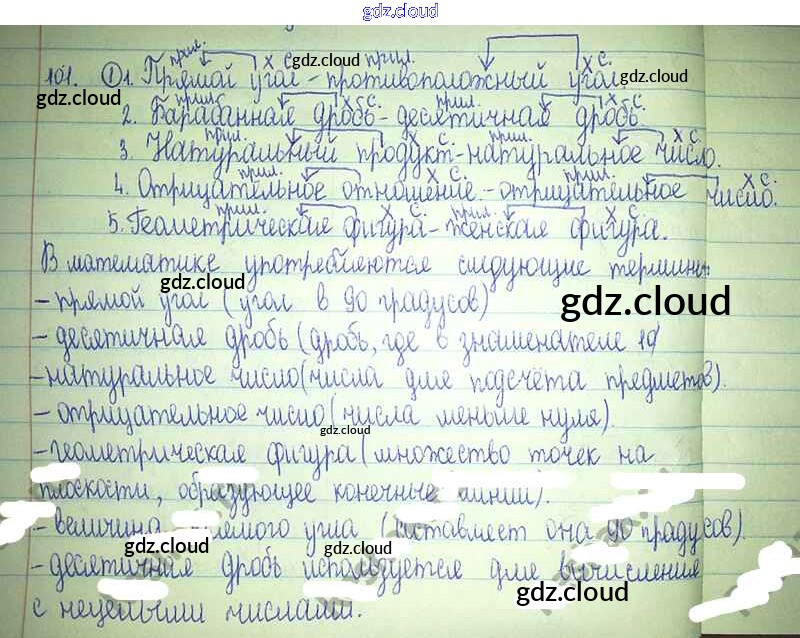 gdz.cloud
прил. х с. прил. х с.
101. ① 1. Прямой угол - противоположный угол.
прил. х с. прил. х с.
2. Барабанная дробь - десятичная дробь.
прил. х с. прил. х с.
3. Натуральный продукт - натуральное число.
прил. х с. прил. х с.
4. Отрицательное отношение - отрицательное число.
прил. х с. прил. х с.
5. Геометрическая фигура - женская фигура.
В математике употребляются следующие термины:
- прямой угол (угол в 90 градусов)
- десятичная дробь (дробь, где в знаменателе 10)
- натуральное число (числа для подсчёта предметов).
- отрицательное число (числа меньше нуля).
- геометрическая фигура (множество точек на
плоскости, образующее конечные линии).
- величина прямого угла (составляет она 90 градусов).
- десятичная дробь используется для вычисления
с нецелыми числами.
gdz.cloud
gdz.cloud
gdz.cloud
gdz.cloud
gdz.cloud
gdz.cloud
gdz.cloud
gdz.cloud
gdz.cloud
gdz.cloud
gdz.cloud